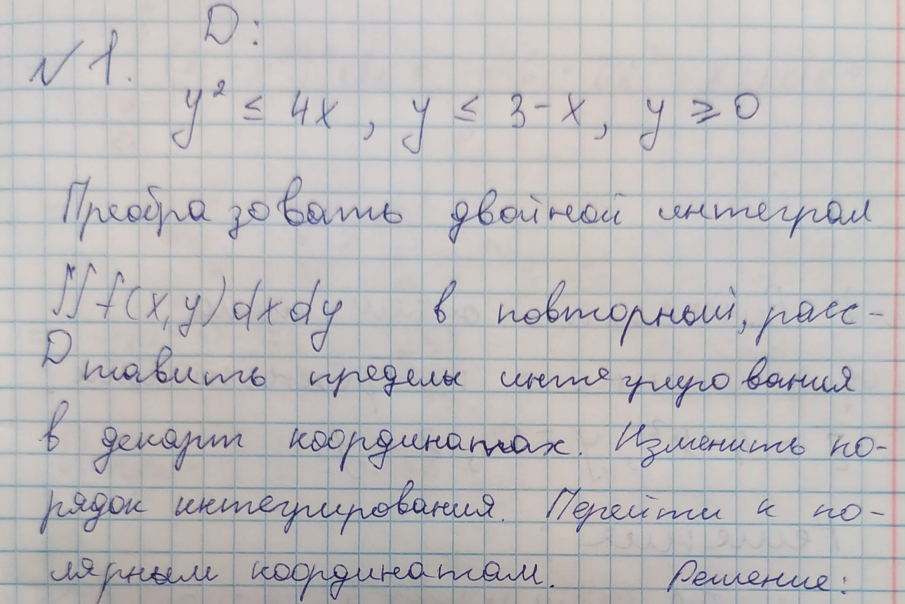 D:
N1.
y² ≤ 4x, y ≤ 3-x, y ≥ 0
Преобразовать двойной интеграл
∬f(x,y)dxdy в повторный, расс-
D
тавить пределы интегрирования
в декарт координатах. Изменить по-
рядок интегрирования. Перейти к по-
лярным координатам. Решение: